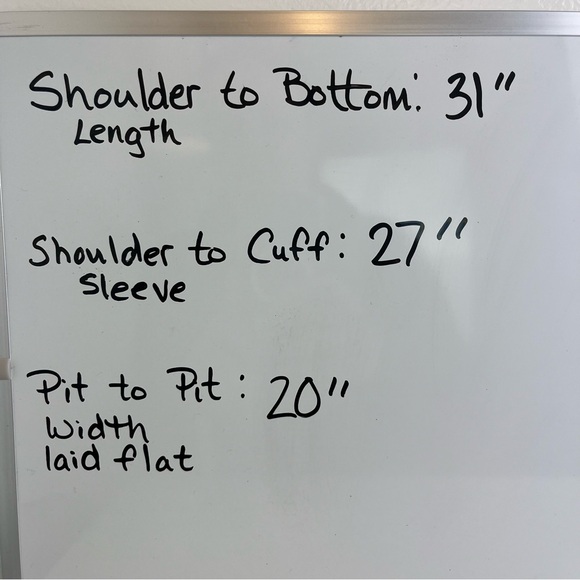 Shoulder to Bottom: 31"
Length
Shoulder to Cuff: 27"
Sleeve
Pit to Pit: 20"
Width
laid flat